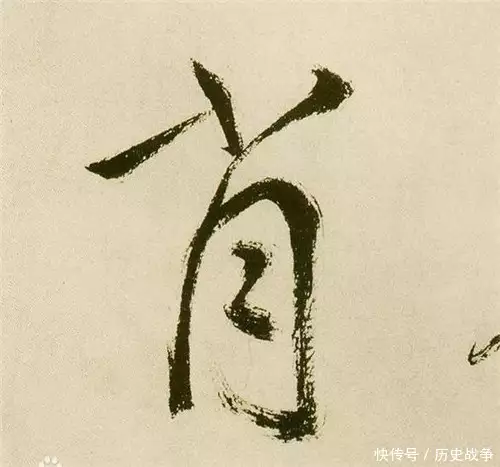 肖
快传号/历史战争